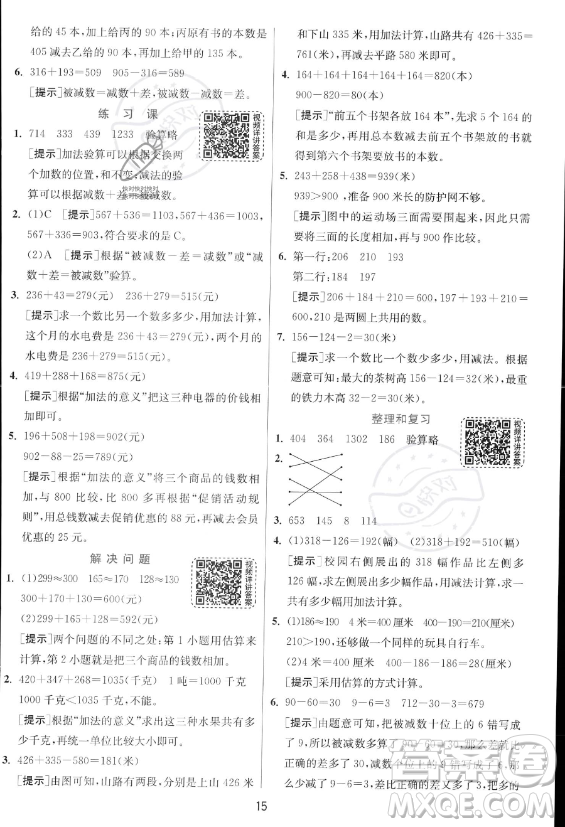 给的 45 本,加上乙给的 90 本;丙原有书的本数是
405 减去乙给的 90 本,再加上给甲的 135 本。
6. 316+193=509 905-316=589
[提示]被减数=减数+差,被减数-减数=差。
练 习 课
1. 714 333 439 1233 验算略
[提示]加法验算可以根据交换两
个加数的位置,和不变;减法的验
视频详讲答案
2. (1)C [提示]567+536=1103,567+531=1098,
567+533=1100,符合要求的是 C。
(2)A [提示]根据“被减数-差=减数”或“减
数+差=被减数”验算。
3. 236+43=279(元) 236+279=515(元)
[提示]求一个数比另一个数多多少,用加法计算,
这个月的水电费是 236+43=279(元),两个月的
水电费是 236+279=515(元)。
4. 419+288+168=875(元)
[提示]根据“加法的意义”把这三种电器的价钱相
加即可。
5. 196+508+198=902(元)
902-88-25=789(元)
[提示]根据“加法的意义”将三个商品的钱数相
加,与 800 比较,比 800 大,再根据“促销活动规
则”,用总钱数减去促销优惠的 88 元,再减去优
惠的 25 元。
解 决 问 题
1. (1)299≈300 165≈170 128≈130
300+170+130=600(元)
(2)299+165+128=592(元)
视频详讲答案
[提示]两个问题的不同之处:第 1 小题用估算计
算,第 2 小题用这三个商品的钱数相加。
2. 420+347+268=1035(千克) 1 吨=1000 千克
1000 千克<1035 千克,不能。
[提示]根据“加法的意义”求出这三种水果共有多
少千克,再与 1000 千克比较大小即可。
3. 426+335-580=181(米)
[提示]由图可知,山路有两段,分别是上山 426 米
和下山 335 米,用加法计算,山路共有 426+335=
761(米),再减去平路 580 米即可。
4. 164+164+164+164+164=820(本)
900-820=80(本)
[提示]“前五个书架各放 164 本”,求 5 个 164 的
和是多少,再用总本数减去前五个书架放的书的本数,就
得到第六个书架要放书的本数。
5. 243+258+438=939(米)
939>900,准备 900 米长的防护网不够。
[提示]图中的运动场三面需要围起来,因此只要
将三面的长度相加,再与 900 作比较即可。
6. 第一行:206 210 193
第二行:184 197
[提示]206+184+210=600,210+193+197=
600,210 是两圆上共用的数。
7. 156-124-2=30(米)
[提示]求比一个数少多少,用减法。根据
题意可知:最大的茶树高 156-124=32(米),最高
的铁力木高 32-2=30(米)。
整理和复习
1. 404 364 1302 186 验算略
2.
视频详讲答案
3. 653 145 8 114
4. (1)318-126=192(幅) (2)318+192=510(幅)
[提示]校园右侧展出的 318 幅作品比左侧展出
的多 126 幅,左侧展出的比右侧少,用减法计算;
求一共多少,用加法计算。
5. (1)186≈190 4 米=400 厘米 400-190=210(厘米)
210>190,还能做一个同样的玩具自行车。
(2)4 米=400 厘米 400-186-186=28(厘米)
[提示]采用估算的方式计算。
6. 90-60=30 9-6=3 712-30-3=679
[提示]由题意可知,被减数十位上的 6 错写成
了 9,所以被减数多算了 90-60=30,那么差就比
正确的差多了 30。减数个位上的 9 错写成 6,那
么少减了 9-6=3,差比正确的差又多了 3。把多的
15